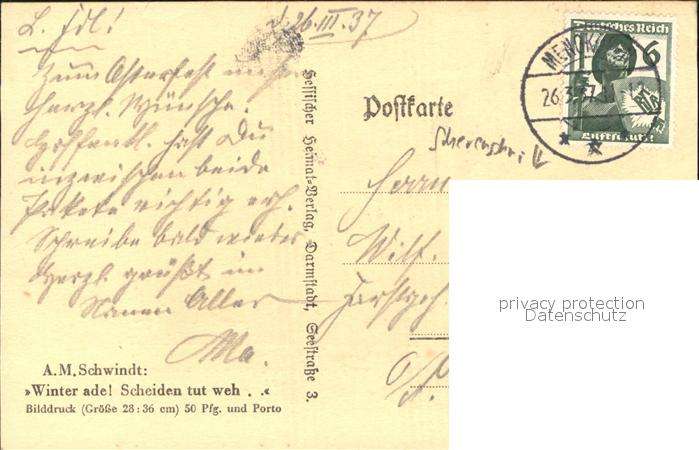 d. 26.III.37
L. Fdl!
Zum Osterfest unsere
herzl. Wünsche.
Hoffentl. hast Du
inzwischen beide
Pakete richtig erh.
Schreibe bald wieder
Herzl. grüßt im
Namen Aller
Ma.
A.M.Schwindt:
»Winter ade! Scheiden tut weh . .«
Bilddruck (Größe 28 : 36 cm) 50 Pfg. und Porto
Hessischer Heimat-Verlag, Darmstadt, Seestraße 3.
Postkarte
Deutsches Reich
6
Luftschutz
26.3.37
Herrn
Wilh.
privacy protection
Datenschutz